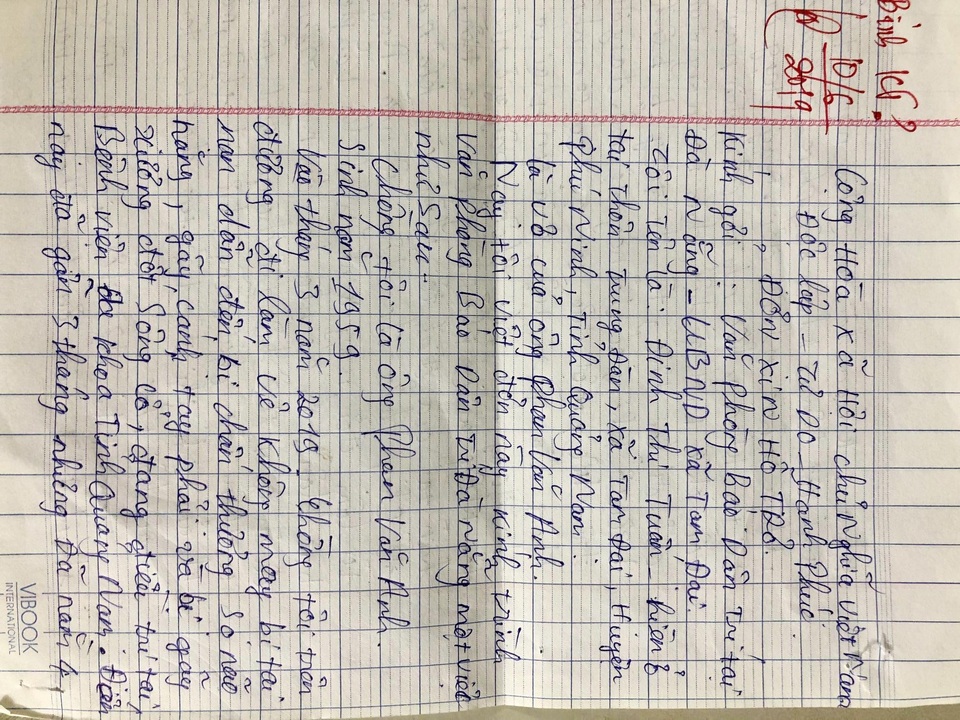 Bình KG?
10/6
2019
Cộng Hòa xã Hội chủ Nghĩa Việt Nam
Độc lập - Tự Do - Hạnh Phúc.
Đơn xin Hỗ Trợ.
Kính gởi: Văn Phòng Báo Dân Trí tại
Đà Nẵng - UBND xã Tam Đại.
Tôi Tên là: Đinh Thị Tuấn - hiện ở
tại thôn Trung Đàn, xã Tam Đại, Huyện
Phú Ninh, Tỉnh Quảng Nam.
là vợ của ông Phan Văn Anh.
Nay tôi viết đơn này kính trình
Văn phòng Báo Dân Trí Đà Nẵng một việc
như Sau:
Chồng tôi là ông Phan Văn Anh.
Sinh năm 1959.
Vào tháng 3 năm 2019 - Chồng tôi trên
đường đi làm về không may bị tai
nạn dẫn đến bị chấn thương Sọ não
nặng, gãy cánh tay phải và bị gãy
xương đốt Sống cổ, đang điều trị tại
Bệnh viện đa khoa Tỉnh Quảng Nam. Đến
nay đã gần 3 tháng nhưng Đã nằm
VIBOOK
INTERNATIONAL